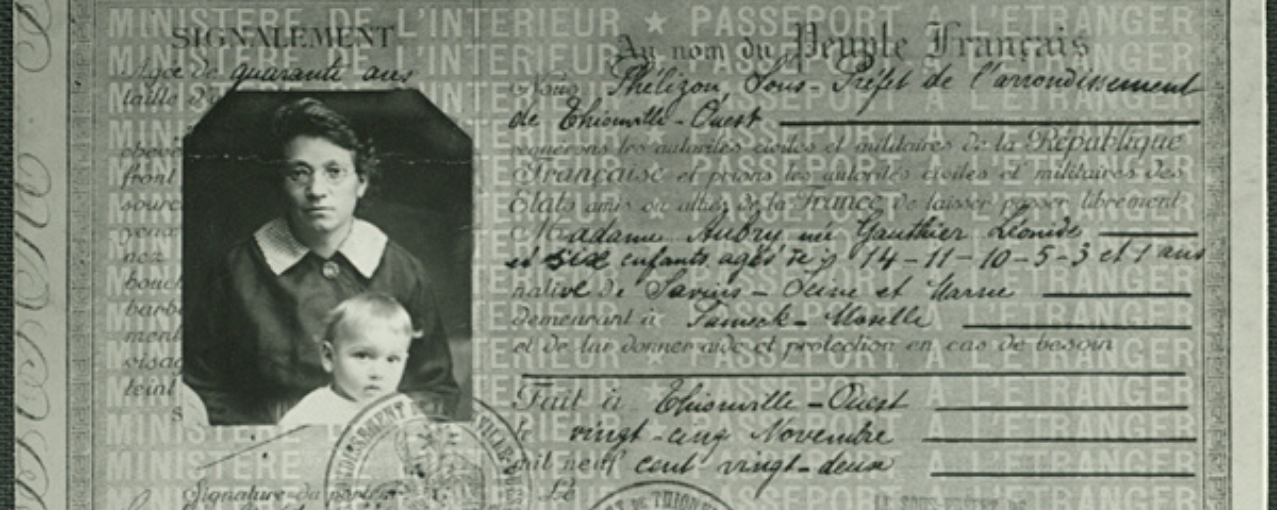 MINISTERE DE L'INTERIEUR ★ PASSEPORT A L'ETRANGER
SIGNALEMENT
Agée de quarante ans
taille d
chev
front
sourc
yeux
nez
bouch
barb
ment
visag
teint
S
Signature du porteur
Au nom du Peuple Français
Nous Phélizon, Sous-Préfet de l'arrondissement
de Thionville-Ouest
requérons les autorités civiles et militaires de la République
Française et prions les autorités civiles et militaires des
Etats amis ou alliés de la France de laisser passer librement
Madame Aubry née Gauthier Léonide
et six enfants agés de 14-11-10-5-3 et 1 ans
native de Savins - Seine et Marne
demeurant à Fameck - Moselle
et de lui donner aide et protection en cas de besoin
Fait à Thionville-Ouest
le vingt-cinq Novembre
mil neuf cent vingt-deux
Le